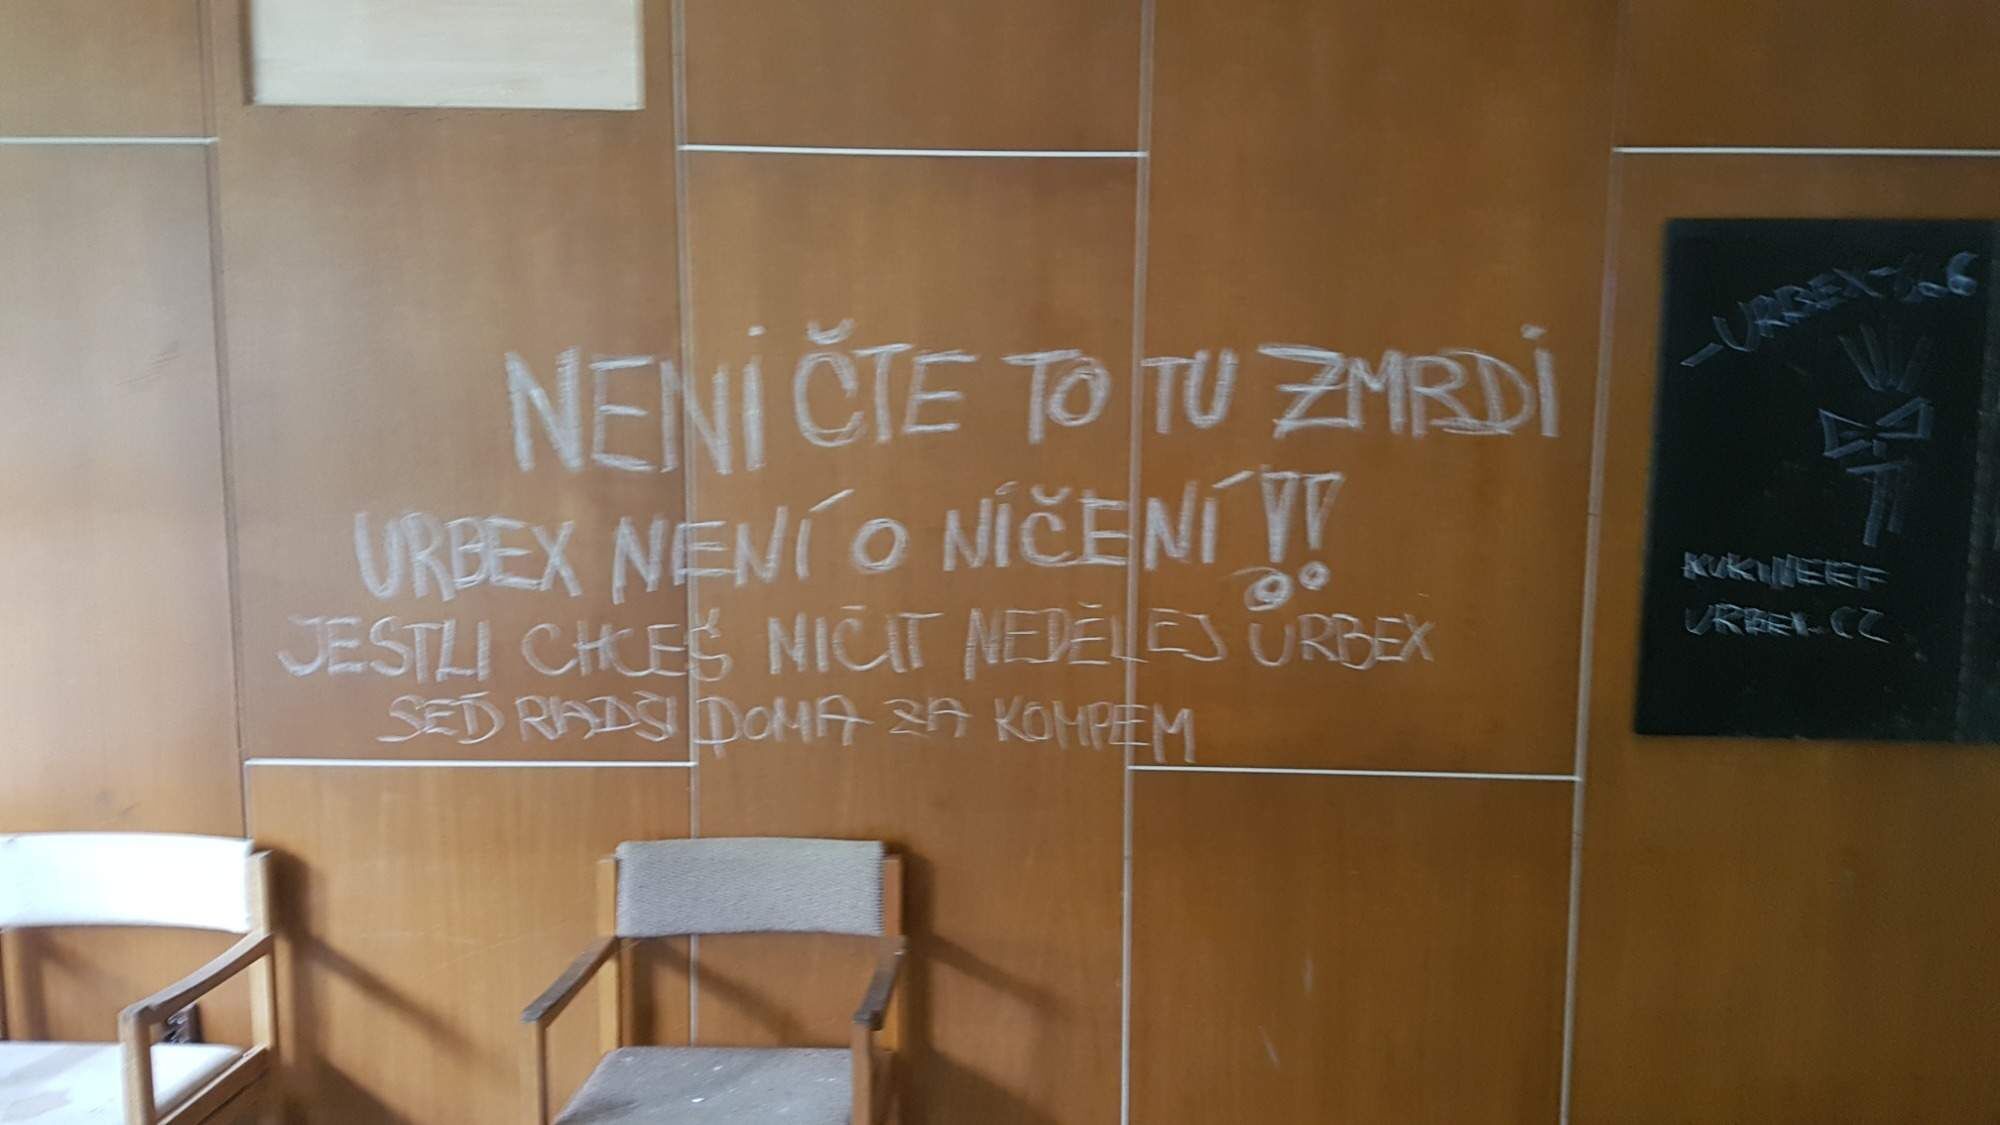 NENIČTE TO TU ZMRDI
URBEX NENÍ O NIČENÍ!!
JESTLI CHCEŠ NIČIT NEDĚLEJ URBEX
SEĎ RADŠI DOMA ZA KOMPEM
URBEX
KUKINEEF
URBEX.CZ